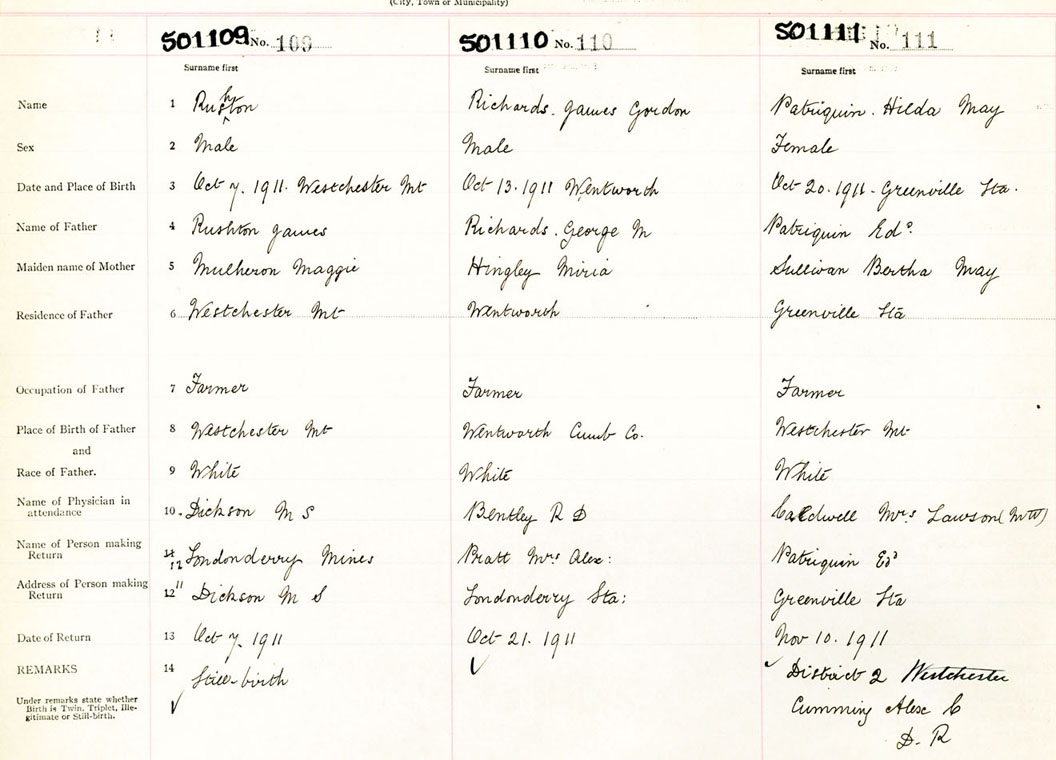 (City, Town or Municipality)
501109 No. 109 501110 No. 110 501111 No. 111
Surname first Surname first Surname first
Name 1 Rushton Richards. James Gordon Patriquin. Hilda May
Sex 2 Male Male Female
Date and Place of Birth 3 Oct 7. 1911. Westchester Mt Oct 13. 1911 Wentworth Oct 20. 1911 - Greenville Sta.
Name of Father 4 Rushton James Richards. George M Patriquin Edd.
Maiden name of Mother 5 Mulheron Maggie Hingley Miria Sullivan Bertha May
Residence of Father 6 Westchester Mt Wentworth Greenville Sta
Occupation of Father 7 Farmer Farmer Farmer
Place of Birth of Father 8 Westchester Mt Wentworth Cumb Co. Westchester Mt
and
Race of Father. 9 White White White
Name of Physician in attendance 10. Dickson M S Bentley R D Caldwell Mrs Lawson (MW)
Name of Person making Return 11 12 Londonderry Mines Pratt Mrs Alex: Patriquin Ed
Address of Person making Return 12 11 Dickson M S Londonderry Sta: Greenville Sta
Date of Return 13 Oct 7. 1911 Oct 21. 1911 Nov 10. 1911
REMARKS 14 Still-birth District 2 Westchester
Under remarks state whether Birth is Twin, Triplet, Ille- gitimate or Still-birth. Cumming Alex C
D. R